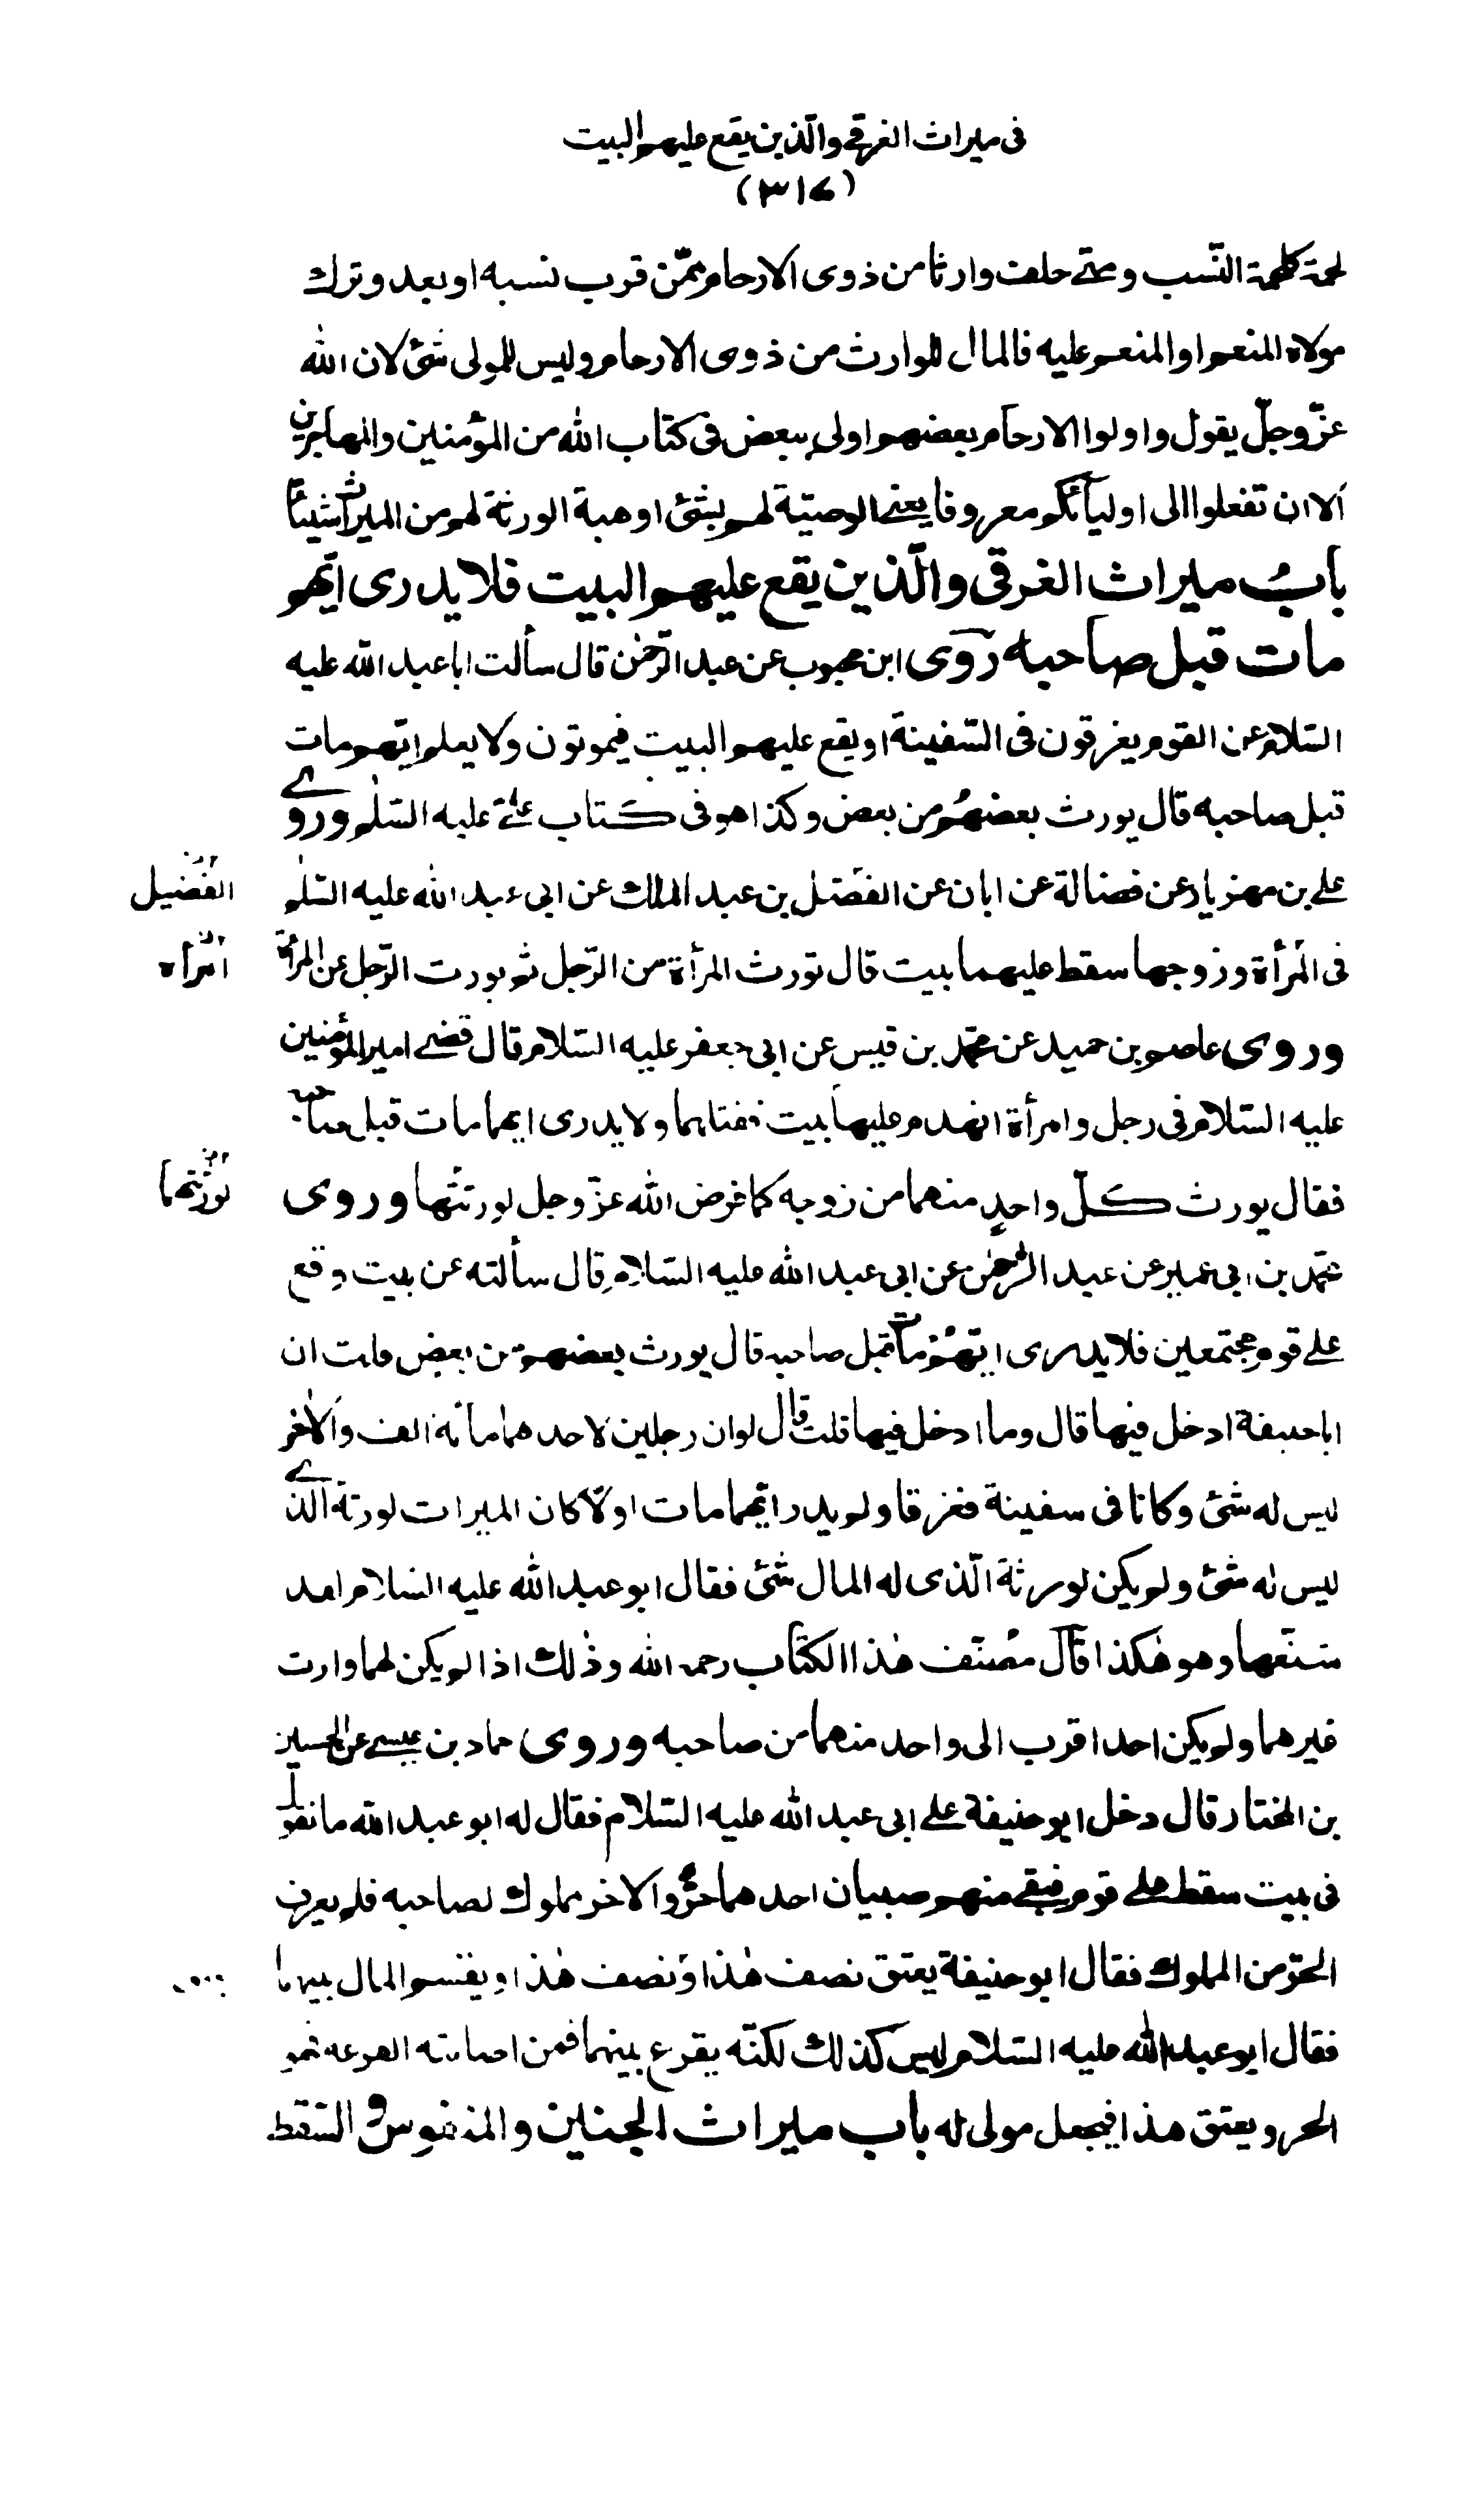 فى ميراث الغرقى والّذين يقع عليهم البيت
(٣١٤)
لحمة كلحمة النّسب ومتى خلفت وارثا من ذوى الارحام ممّن قرب نسبه او بعد وترك
مولاه المنعم او المنعم عليه فالمال للوارث من ذوى الارحام وليس للمولى شئ لان الله
عزّ وجلّ يقول واولوا الارحام بعضهم اولى ببعض فى كتاب الله من المؤمنين والمهاجرين
الا ان تفعلوا الى اوليآئكم معروفا يعنى الوصيّة لهم بشئ او هبة الورثة لهم من الميراث شيئاً
باب ميراث الغرقى والّذين يقع عليهم البيت فلا يدرى ايّهم
مات قبل صاحبه روى ابن محبوب عن عبد الرّحمٰن قال سألت ابا عبد الله عليه
السّلام عن القوم يغرقون فى السّفينة او يقع عليهم البيت فيموتون ولا يعلم ايّهم مات
قبل صاحبه قال يورث بعضهم من بعض وكذا هو فى كتاب علىّ عليه السّلٰم وروى
على بن مهزيار عن فضالة عن ابان عن الفضل بن عبد الملك عن ابى عبد الله عليه السّلٰم
الفضيل
فى المرأة وزوجها سقط عليهما بيت قال تورث المرأة من الرّجل ثم يورث الرّجل عن المرأة
امرأه
وروى عاصم بن حميد عن محمّد بن قيس عن ابى جعفر عليه السّلام قال قضى امير المؤمنين
عليه السّلام فى رجل وامرأة انهدم عليهما بيت فقتلهما ولا يدرى ايهما مات قبل صاحبه
فقال يورث كلّ واحدٍ منهما من زوجه كما فرض الله عزّ وجل لورثتها وروى
لورثتهما
محمّد بن ابى عمير عن عبد الرّحمٰن عن ابى عبد الله عليه السّلام قال سألته عن بيت وقع
على قوم مجتمعين فلا يدرى ايّهم مات قبل صاحبه قال يورث بعضهم من بعض قلت ان
ابا حنيفة ادخل فيها قال وما ادخل فيها قلت قال لو ان رجلين لاحدهما مائة الف والاٰخر
ليس له شئ وكانا فى سفينة فغرقا ولم يدر ايّهما مات اوّلا كان الميراث لورثة الّذى
ليس له شئ ولم يكن لورثة الّذى له المال شئ فقال ابو عبد الله عليه السّلام لقد
سمعها وهو هٰكذا قال مصنّف هٰذا الكتاب رحمه الله وذٰلك اذا لم يكن لهما وارث
غيرهما ولم يكن احد اقرب الى واحد منهما من صاحبه وروى حماد بن عيسى عن الحسين
بن المختار قال دخل ابو حنيفة على ابى عبد الله عليه السّلام فقال له ابو عبد الله ما تقول
فى بيت سقط على قوم فبقى منهم صبيان احدهما حرّ والاخر مملوك لصاحبه فلم يعرف
الحرّ من المملوك فقال ابو حنيفة يعتق نصف هٰذا ونصف هٰذا ويقسم المال بينهما
فقال ابو عبد الله عليه السّلام ليس كذلك لكنّه يقرع بينهما فمن اصابته القرعة فهو
الحر ويعتق هذا فيجعل مولى له باب ميراث الجنين والمنفوس والسّقط